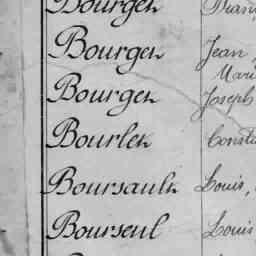 Bourgeh
Bourgeh Jean
Mari
Bourgeh Joseph
Bourleh Consta
Boursault Louis,
Bourseul Louis